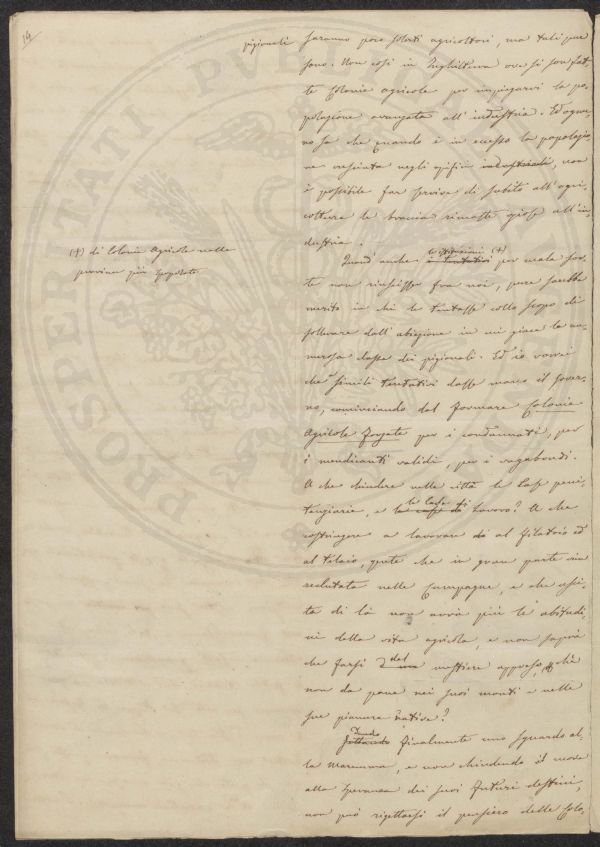 14
pigionali saranno poco solerti agricoltori, ma tali pure
sono. Non così in Inghilterra ove si son fat-
te Colonie agricole per impiegarvi la po-
polazione avanzata all'industria. Ed ognu-
no sa che quando è in eccesso la popolazio-
ne cresciuta negli opificj industriali, non
è possibile far servire di subito all'agri-
coltura le braccia rimaste oziose all'in-
dustria.
Quand'anche istituzioni (+) i tentativi per mala sor-
te non riuscisse fra noi, pure sarebbe
merito in chi le tentasse collo scopo di
sollevare dall'abiezione in cui giace la nu-
merosa classe dei pigionali. Ed io vorrei
che simili tentativi dasse mano il Gover-
no, cominciando dal formare Colonie
Agricole forzate per i condannati, per
i mendicanti validi, per i vagabondi.
A che chiudere nelle città le Case peni-
tenziarie, e le case di le Case di Lavoro? A che
costringere a lavorare al filatoio ed
al telaio, gente che in gran parte vien
reclutata nelle Campagne, e che esci-
ta di là non avrà più le abitudi-
ni della vita agricola, e non saprà
che farsi del mestiere appreso, chè
non da pane nei suoi monti e nelle
sue pianure native?
Gettando Dando finalmente uno sguardo al-
la Maremma, e non chiudendo il cuore
alla speranza dei suoi futuri destini,
non può rigettarsi il pensiero delle Colo-
(+) di Colonie Agricole nelle
provincie più spopolate
PROSPERITATI PVBLICAE